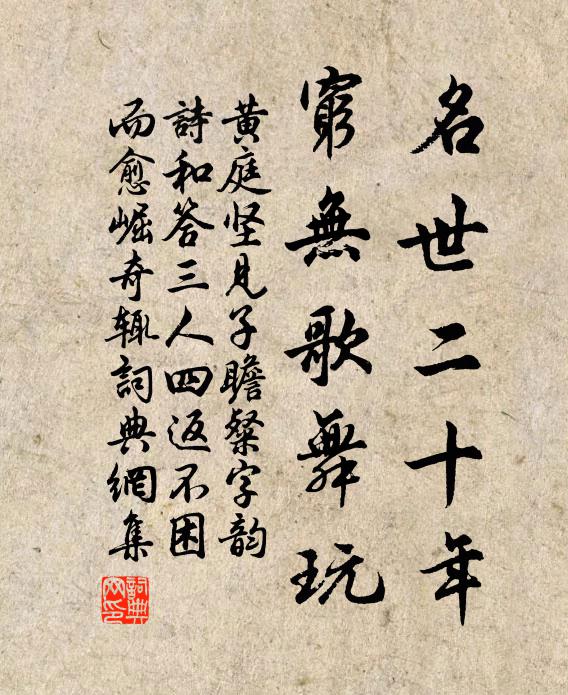 名世二十年
窮無歌舞玩
黄庭坚見子瞻粲字韵
詩和答三人四返不困
而愈崛奇輒詞典網集
詞典網印